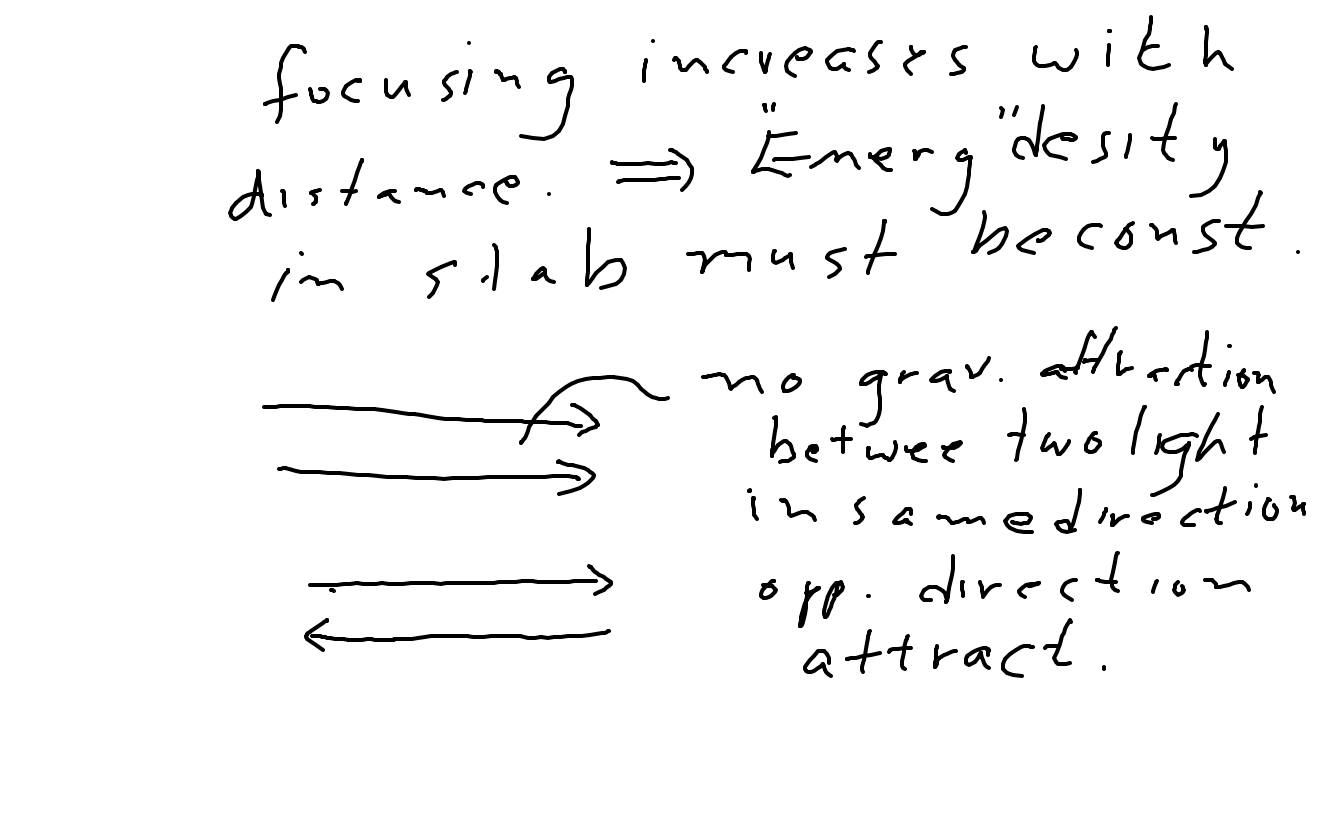 focusing increases with
distance. ⇒ "Energ" desity
in slab must be const.
no grav. attraction
betwee two light
in same direction
opp. direction
attract.